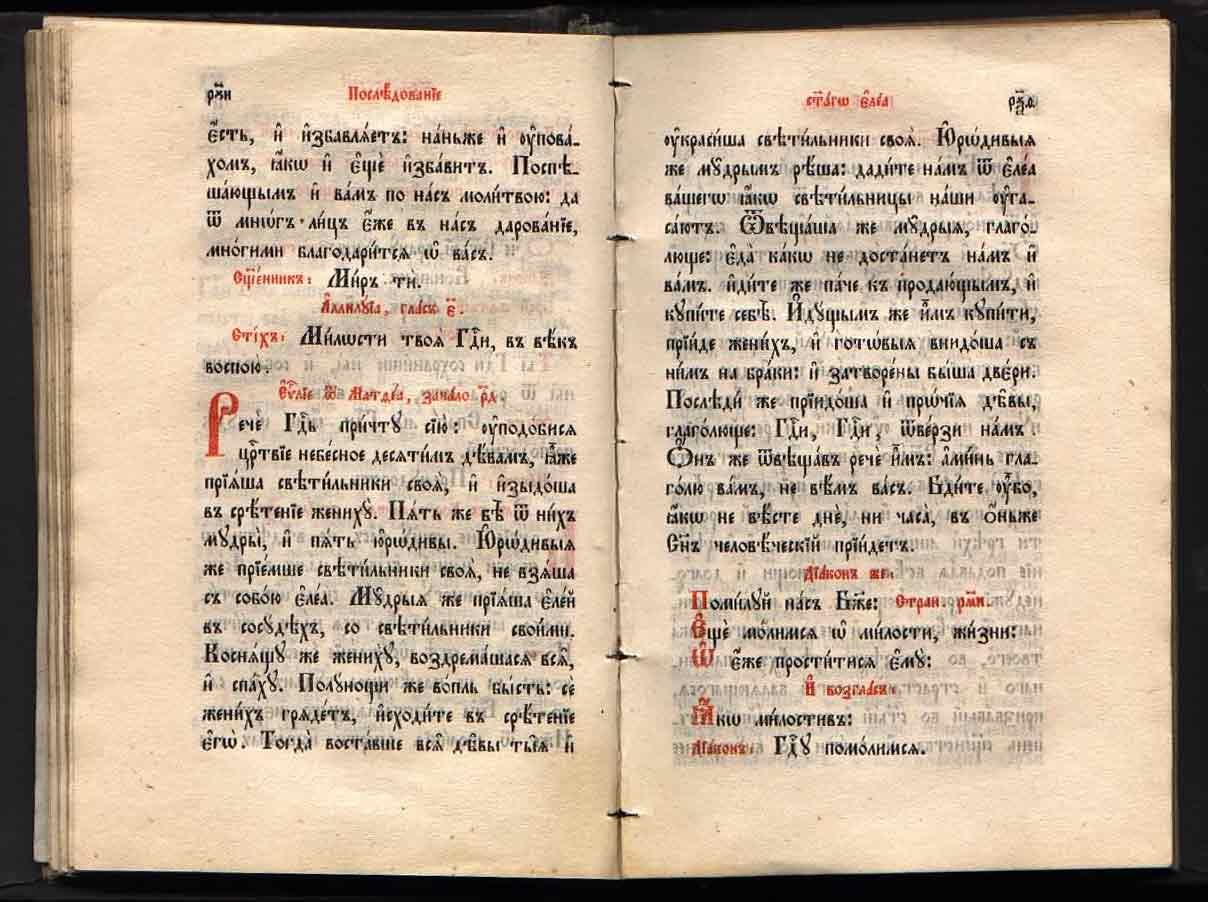 рѯ҃и
Послѣ́дованїе
є҆́сть, и҆ и҆збавлѧ́етъ: на́ньже и҆ ᲂу҆пова́-
хомъ, ꙗ҆́кѡ и҆ є҆щѐ и҆зба́витъ. Поспѣ-
ша́ющымъ и҆ ва́мъ по на́съ моли́твою: да
ѿ мнѡ́гъ лицъ є҆́же въ на́съ дарова́нїе,
мно́гими благодари́тсѧ ѡ҆ ва́съ.
Сщ҃е́нникъ: Ми́ръ тѝ.
А҆ллилꙋ́їа, гла́съ є҃.
Сті́хъ: Ми́лѡсти твоѧ̑ Гдⷭ҇и, въ вѣ́къ
воспою̀.
Є҆ѵⷢ҇лїе ѿ Матѳе́а, зача́ло р҃д
Речѐ Гдⷭ҇ь при́тчꙋ сїю̀: ᲂу҆подо́бисѧ
црⷭ҇твїе небе́сное десѧти́мъ дѣ́вамъ, ꙗ҆̀же
прїѧ́ша свѣти́льники своѧ̑, и҆ и҆зыдо́ша
въ срѣ́тенїе женихꙋ̀. Пѧ́ть же бѣ̀ ѿ ни́хъ
мꙋ́дры, и҆ пѧ́ть ю҆рѡ́дивы. Ю҆рѡ́дивыѧ
же прїе́мше свѣти́льники своѧ̑, не взѧ́ша
съ собо́ю є҆ле́а. Мꙋ́дрыѧ же прїѧ́ша є҆ле́й
въ сосꙋ́дѣхъ, со свѣти́льники свои́ми.
Коснѧ́щꙋ же женихꙋ̀, воздрема́шасѧ всѧ̑,
и҆ спа́хꙋ. Полꙋ́нощи же во́пль бы́сть: сѐ
жени́хъ грѧде́тъ, и҆сходи́те въ срѣ́тенїе
є҆гѡ̀. Тогда̀ воста́вше всѧ̑ дѣ̑вы ты̑ѧ и҆
ст҃а́гѡ є҆ле́а
рѯ҃ѳ.
ᲂу҆краси́ша свѣти́льники своѧ̑. Ю҆рѡ́дивыѧ
же мꙋ̑дрымъ рѣ́ша: дади́те на́мъ ѿ є҆ле́а
ва́шегѡ ꙗ҆́кѡ свѣти́льницы на́ши ᲂу҆га-
са́ютъ. Ѿвѣща́ша же мꙋ́дрыѧ, глаго́-
люще: є҆да̀ ка́кѡ не доста́нетъ на́мъ и҆
ва́мъ. и҆ди́те же па́че къ продаю́щымъ, и҆
кꙋпи́те себѣ̀. И҆дꙋ́щымъ же и҆̀мъ кꙋпи́ти,
прїи́де жени́хъ, и҆ гото́выѧ внидо́ша съ
ни́мъ на бра́ки: и҆ затворе́ны бы́ша две́ри.
Послѣди́ же прїидо́ша и҆ прѡ́чїѧ дѣ̑вы,
глаго́люще: Гдⷭ҇и, Гдⷭ҇и, ѿве́рзи на́мъ.
Ѻ҆́нъ же ѿвѣща́въ речѐ и҆̀мъ: а҆ми́нь гла-
го́лю ва́мъ, не вѣ́мъ ва́съ. Бди́те ᲂу҆̀бо,
ꙗ҆́кѡ не вѣ́сте днѐ, ни часа̀, въ ѻ҆́ньже
Сн҃ъ человѣ́ческїй прїи́детъ.
Дїа́конъ же:
Поми́лꙋй на́съ Бж҃е: Стран. рм҃и.
Є҆щѐ мо́лимсѧ ѡ҆ ми́лости, жи́зни:
Ѡ҆ є҆́же прости́тисѧ є҆мꙋ̀:
И҆ возгла́съ:
Ꙗ҆́кѡ ми́лостивъ:
Дїа́конъ: Гдⷭ҇ꙋ помо́лимсѧ.